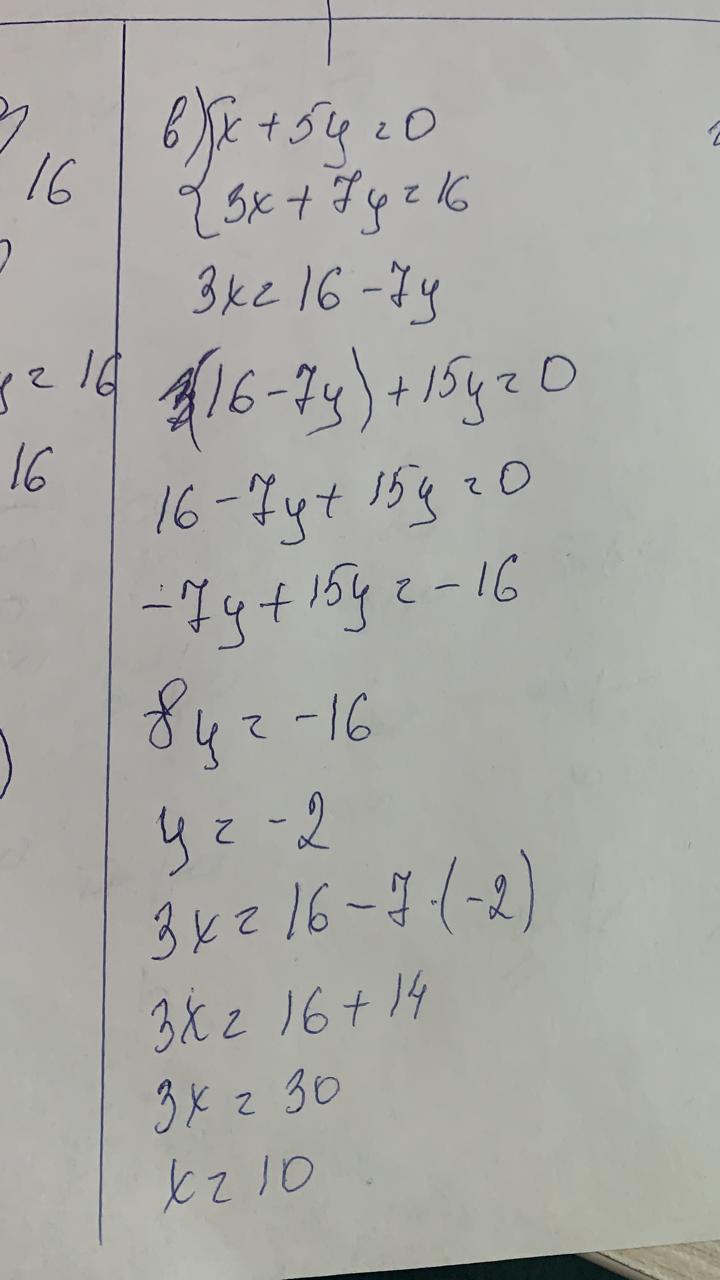 16
y = 16
16
в) { x + 5y = 0
3x + 7y = 16
3x = 16 - 7y
(16 - 7y) + 15y = 0
16 - 7y + 15y = 0
-7y + 15y = -16
8y = -16
y = -2
3x = 16 - 7 · (-2)
3x = 16 + 14
3x = 30
x = 10